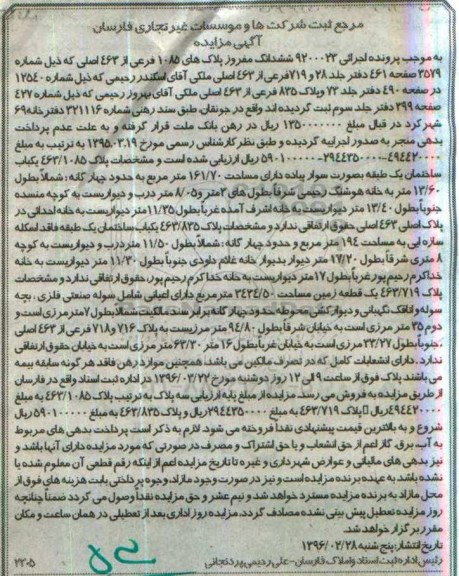 مرجع ثبت شرکت ها و موسسات غیر تجاری فارسان
آگهی مزایده
به موجب پرونده اجرائی ۹۲۰۰۰۲۳ ششدانگ مفروز پلاک های ۱۰۸۵ فرعی از ۴۶۳ اصلی که ذیل شماره
۳۵۷۹ صفحه ۴۶۱ دفتر جلد ۲۸ و ۷۱۹ فرعی از ۴۶۳ اصلی ملکی آقای اسکندر رحیمی که ذیل شماره ۱۲۵۴۰
در صفحه ۴۹۰ دفتر جلد ۷۳ وپلاک ۸۳۵ فرعی از ۴۶۳ اصلی ملکی آقای بهروز رحیمی که ذیل شماره ۴۲۷
صفحه ۳۹۹ دفتر جلد سوم ثبت گردیده اند واقع در جونقان طبق سند رهنی شماره ۳۲۱۱۱۶ دفترخانه ۶۹
شهرکرد در قبال مبلغ ۱۳۵۰۰۰۰۰۰۰ ریال در رهن بانک ملت قرار گرفته و به علت عدم پرداخت
بدهی منجر به صدور اجراییه گردیده و طبق نظر کارشناس رسمی مورخ ۱۳۹۵.۰۳.۱۹ به ترتیب به مبلغ
ریال ارزیابی شده است و مشخصات پلاک ۴۶۳/۱۰۸۵ یکباب
ساختمان یک طبقه بصورت سوار پیاده دارای مساحت ۱۶۱/۷۰ متر مربع به حدود چهار گانه : شمالا بطول
۱۳/۶۰ متر به خانه هوشنگ رحیمی شرقا بطول های ۳متر و ۸/۰۵متر درب و دیواریست به کوچه منسده
جنوبا بطول ۱۳/۴۰ متر دیواریست به خانه اشرف آمده غربا بطول ۱۱/۳۵متر دیواریست به خانه احداثی در
پلاک اصلی ۴۶۳ اصلی حقوق ارتفاقی ندارد و مشخصات پلاک ۴۶۳/۸۳۵ یکباب ساختمان یک طبقه فاقد اسکله
سازه ایی به مساحت ۱۹۴ متر مربع و حدود چهار گانه : شمالا بطول ۱۱/۵۰ متر درب و دیواریست به کوچه
۸ متری شرقا بطول ۱۷/۲۰ متر دیوار بدیوار خانه غلام داودی جنوبا بطول ۱۱/۳۰ متر دیواریست به خانه
خداکرم رحیم پور غربا بطول ۱۷ متر دیواریست به خانه خداکرم رحیم پور، حقوق ارتفاقی ندارد و مشخصات
پلاک ۴۶۳/۷۱۹ یک قطعه زمین مساحت ۳۴۳۴/۵۰ مترمربع دارای اعیانی شامل سوله صنعتی فلزی ، بچه
سوله و اتاقک نگهبانی و دیوارکشی محوطه حدود چهار گانه برابر سند مالکیت شمالا بطول ۷متر مرزی است و
دوم ۳۵ متر مرزی است به خیابان شرقا بطول ۹۴/۸۰ متر مرزیست به پلاک ۷۱۶ و ۷۱۸ فرعی از ۴۶۳ اصلی
،جنوبا بطول ۲۳/۲۷ مرزی است به خیابان غربا بطول ۱۶ متر ۶۳/۲۰ متر مرزی است به خیابان حقوق ارتفاقی
ندارد .دارای انشعابات کامل که در تصرف مالکین می باشد. همچنین موارد رهن فاقد هر گونه سابقه بیمه
می باشند پلاک فوق از ساعت ۹ الی ۱۲ روز دوشنبه مورخ ۱۳۹۶/۰۳/۲۲ در اداره ثبت اسناد واقع در فارسان
از طریق مزایده به فروش می رسد. مزایده از مبلغ پایه ارزیابی سه پلاک به ترتیب پلاک ۴۶۳/۱۰۸۵ به مبلغ
ریال پلاک ۴۶۳/۷۱۹ به مبلغ ریال و پلاک ۴۶۳/۸۳۵ به مبلغ ریال
شروع و به بالاترین قیمت پیشنهادی نقدا فروخته می شود. لازم به ذکر است پرداخت بدهی های مربوط
به آب، برق، گاز اعم از حق انشعاب و یا حق اشتراک و مصرف در صورتی که مورد مزایده دارای آنها باشد و
نیز بدهی های مالیاتی و عوارض شهرداری و غیره تا تاریخ مزایده اعم از اینکه رقم قطعی آن معلوم شده یا
نشده باشد به عهده برنده مزایده است و نیز در صورت وجود مازاد، وجوه پرداختی بابت هزینه های فوق از
محل مازاد به برنده مزایده مسترد خواهد شد و نیم عشر و حق مزایده نقدا وصول می گردد ضمنا چنانچه
روز مزایده تعطیل پیش بینی نشده مصادف گردد، مزایده روز اداری بعد از تعطیلی در همان ساعت و مکان
مقرر برگزار خواهد شد.
تاریخ انتشار: پنج شنبه ۱۳۹۶/۰۲/۲۸
رئیس اداره ثبت اسناد و املاک فارسان-علی رحیمی پردنجانی
۲۲۰۵